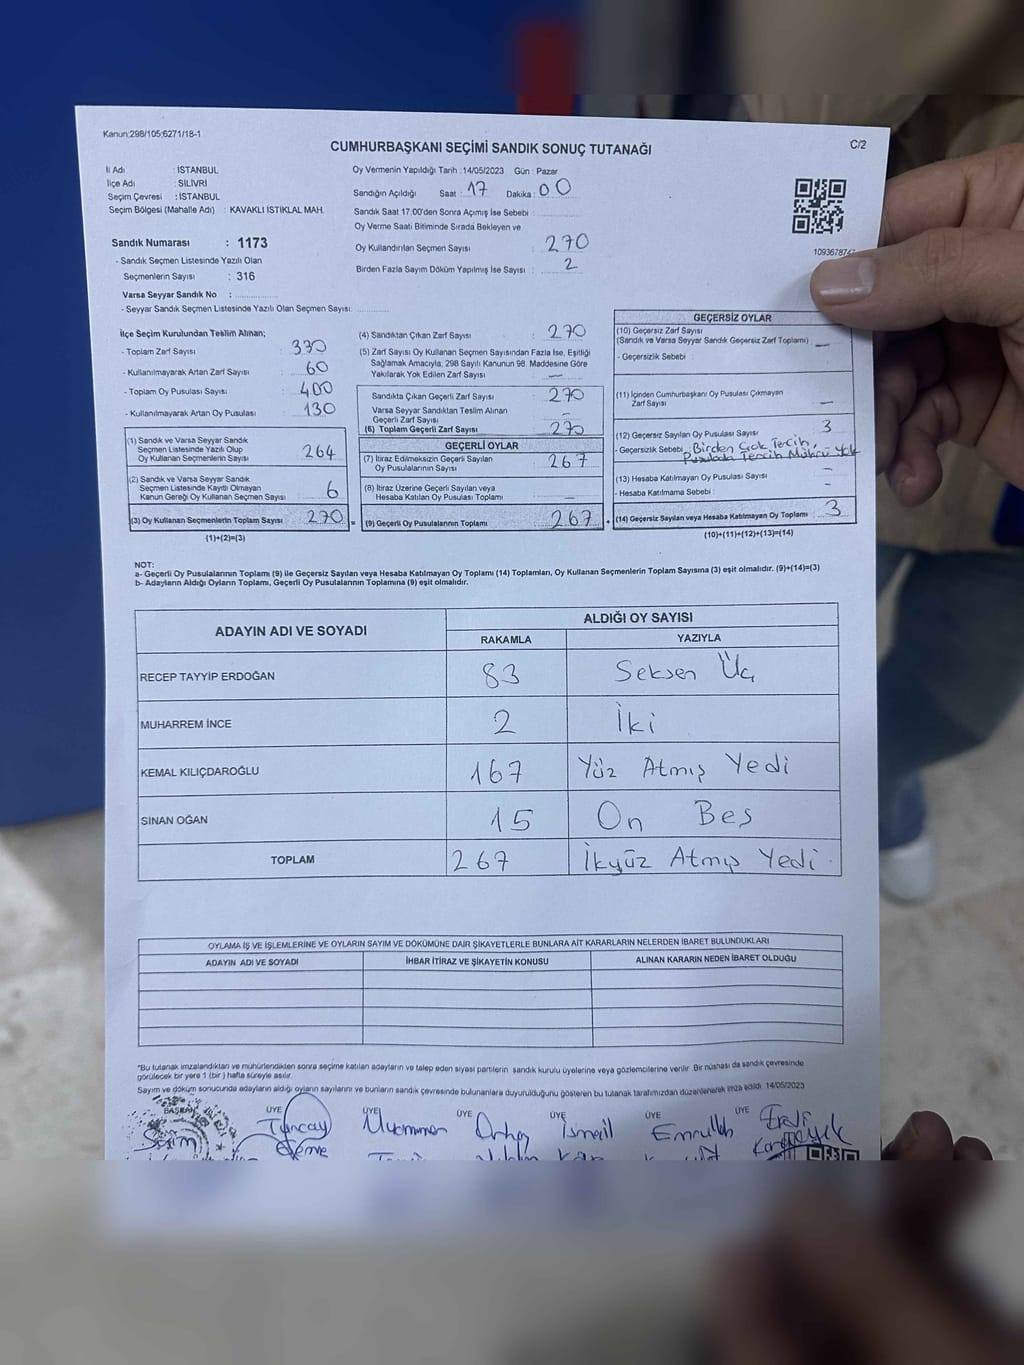 Kanun:298/105;6271/18-1
C/2
CUMHURBAŞKANI SEÇİMİ SANDIK SONUÇ TUTANAĞI
İl Adı : İSTANBUL
İlçe Adı : SİLİVRİ
Seçim Çevresi : İSTANBUL
Seçim Bölgesi (Mahalle Adı) : KAVAKLI İSTİKLAL MAH.
Sandık Numarası : 1173
- Sandık Seçmen Listesinde Yazılı Olan
Seçmenlerin Sayısı : 316
Varsa Seyyar Sandık No :
- Seyyar Sandık Seçmen Listesinde Yazılı Olan Seçmen Sayısı:
Oy Vermenin Yapıldığı Tarih :14/05/2023 Gün : Pazar
Sandığın Açıldığı Saat : 17 Dakika : 00
Sandık Saat 17:00'den Sonra Açımış İse Sebebi :
Oy Verme Saati Bitiminde Sırada Bekleyen ve
Oy Kullandırılan Seçmen Sayısı : 270
Birden Fazla Sayım Döküm Yapılmış İse Sayısı : 2
1093678747
İlçe Seçim Kurulundan Teslim Alınan;
- Toplam Zarf Sayısı : 330
- Kullanılmayarak Artan Zarf Sayısı : 60
- Toplam Oy Pusulası Sayısı : 400
- Kullanılmayarak Artan Oy Pusulası : 130
(1) Sandık ve Varsa Seyyar Sandık
Seçmen Listesinde Yazılı Olup
Oy Kullanan Seçmenlerin Sayısı 264
(2) Sandık ve Varsa Seyyar Sandık
Seçmen Listesinde Kayıtlı Olmayan
Kanun Gereği Oy Kullanan Seçmen Sayısı 6
(3) Oy Kullanan Seçmenlerin Toplam Sayısı 270 =
(1)+(2)=(3)
(4) Sandıktan Çıkan Zarf Sayısı : 270
(5) Zarf Sayısı Oy Kullanan Seçmen Sayısından Fazla İse, Eşitliği
Sağlamak Amacıyla, 298 Sayılı Kanunun 98. Maddesine Göre
Yakılarak Yok Edilen Zarf Sayısı : —
Sandıkta Çıkan Geçerli Zarf Sayısı : 270
Varsa Seyyar Sandıktan Teslim Alınan
Geçerli Zarf Sayısı : —
(6) Toplam Geçerli Zarf Sayısı : 270
GEÇERLİ OYLAR
(7) İtiraz Edilmeksizin Geçerli Sayılan
Oy Pusulalarının Sayısı : 267
(8) İtiraz Üzerine Geçerli Sayılan veya
Hesaba Katılan Oy Pusulası Toplamı : —
(9) Geçerli Oy Pusulalarının Toplamı 267 +
GEÇERSİZ OYLAR
(10) Geçersiz Zarf Sayısı
(Sandık ve Varsa Seyyar Sandık Geçersiz Zarf Toplamı) : —
- Geçersizlik Sebebi :
(11) İçinden Cumhurbaşkanı Oy Pusulası Çıkmayan
Zarf Sayısı : —
(12) Geçersiz Sayılan Oy Pusulası Sayısı : 3
- Geçersizlik Sebebi : Birden Çok Tercih,
Pusulada Tercih Mührü Yok
(13) Hesaba Katılmayan Oy Pusulası Sayısı : —
- Hesaba Katılmama Sebebi : —
(14) Geçersiz Sayılan veya Hesaba Katılmayan Oy Toplamı : 3
(10)+(11)+(12)+(13)=(14)
NOT:
a- Geçerli Oy Pusulalarının Toplamı (9) ile Geçersiz Sayılan veya Hesaba Katılmayan Oy Toplamı (14) Toplamları, Oy Kullanan Seçmenlerin Toplam Sayısına (3) eşit olmalıdır. (9)+(14)=(3)
b- Adayların Aldığı Oyların Toplamı, Geçerli Oy Pusulalarının Toplamına (9) eşit olmalıdır.
ADAYIN ADI VE SOYADI
ALDIĞI OY SAYISI
RAKAMLA YAZIYLA
RECEP TAYYİP ERDOĞAN 83 Seksen Üç
MUHARREM İNCE 2 İki
KEMAL KILIÇDAROĞLU 167 Yüz Atmış Yedi
SİNAN OĞAN 15 On Beş
TOPLAM 267 İkyüz Atmış Yedi
OYLAMA İŞ VE İŞLEMLERİNE VE OYLARIN SAYIM VE DÖKÜMÜNE DAİR ŞİKAYETLERLE BUNLARA AİT KARARLARIN NELERDEN İBARET BULUNDUKLARI
ADAYIN ADI VE SOYADI İHBAR İTİRAZ VE ŞİKAYETİN KONUSU ALINAN KARARIN NEDEN İBARET OLDUĞU
*Bu tutanak imzalandıktan ve mühürlendikten sonra seçime katılan adayların ve talep eden siyasi partilerin sandık kurulu üyelerine veya gözlemcilerine verilir. Bir nüshası da sandık çevresinde
görülecek bir yere 1 (bir) hafta süreyle asılır.
Sayım ve döküm sonucunda adayların aldığı oyların sayılarını ve bunların sandık çevresinde bulunanlara duyurulduğunu gösteren bu tutanak tarafımızdan düzenlenerek imza edildi. 14/05/2023
BAŞKAN ÜYE ÜYE ÜYE ÜYE ÜYE ÜYE
Tuncay Orhan İsmail Emrullah